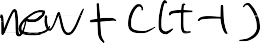 new + C(t-1)